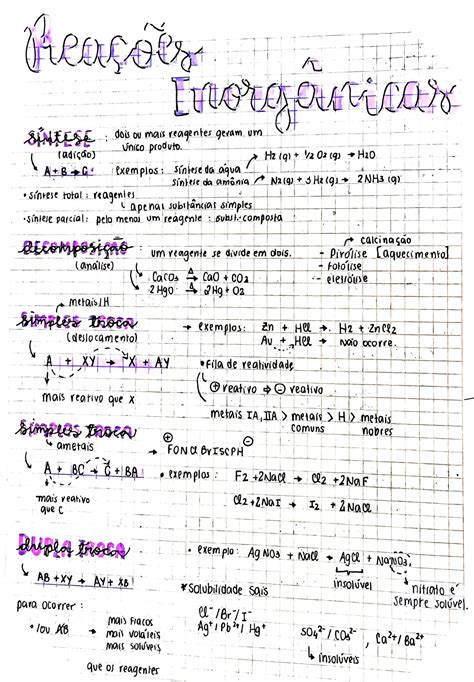 Reações
Inorgânicas
síntese : dois ou mais reagentes geram um
único produto.
(adição)
A + B → C
exemplos: síntese da água → H2(g) + 1/2 O2(g) → H2O
síntese da amônia → N2(g) + 3H2(g) → 2NH3(g)
• síntese total: reagentes
↳ apenas substâncias simples
• síntese parcial: pelo menos um reagente: subst. composta
decomposição : um reagente se divide em dois.
(análise)
CaCO3 Δ→ CaO + CO2
2HgO Δ→ 2Hg + O2
calcinação
- Pirólise [aquecimento]
- fotólise
- eletrólise
metais/H
simples troca
(deslocamento)
A + XY → X + AY
mais reativo que X
→ exemplos: Zn + HCl → H2 + ZnCl2
Au + HCl → Não ocorre.
• Fila de reatividade
⊕ reativo ⇒ ⊖ reativo
metais IA, IIA > metais comuns > H > metais nobres
simples troca
ametais
A + BC → C + BA
mais reativo
que C
⊕ ⊖
→ FONClBrISCPH
• exemplos: F2 + 2NaCl → Cl2 + 2NaF
Cl2 + 2NaI → I2 + 2NaCl
dupla troca
AB + XY → AY + XB
• exemplo: AgNO3 + NaCl → AgCl + NaNO3
insolúvel
nitrato é
sempre solúvel.
para ocorrer:
mais fracos
mais voláteis
mais solúveis
que os reagentes
*Solubilidade sais
Cl-/Br-/I-
Ag+/Pb2+/Hg+
SO4 2-/CO3 2-, Ca2+/Ba2+
↳ insolúveis